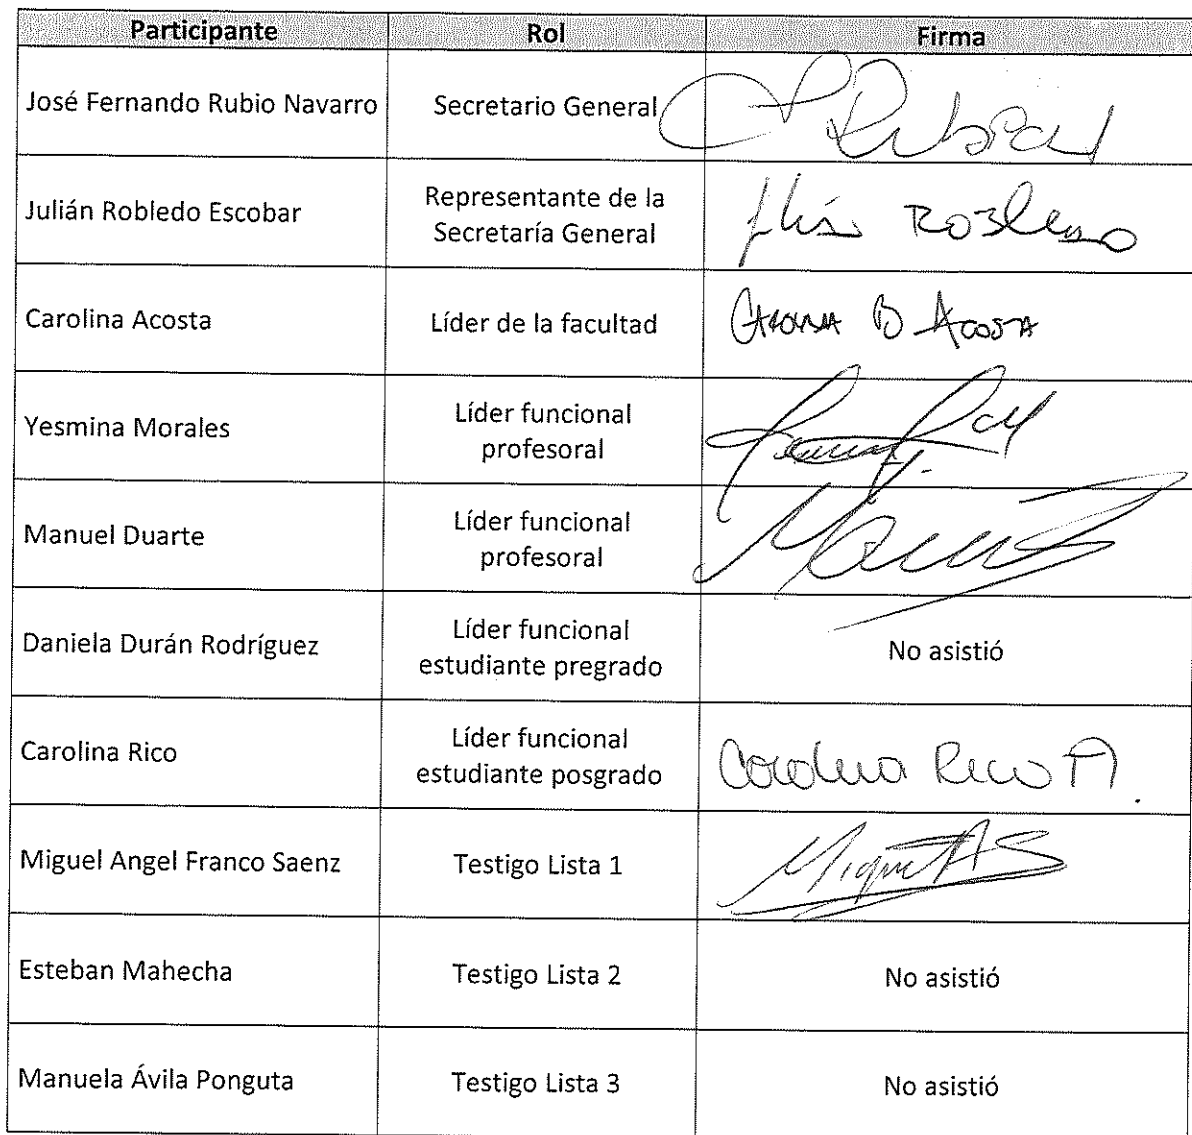 Participante Rol Firma
José Fernando Rubio Navarro Secretario General
Julián Robledo Escobar Representante de la
Secretaría General
Julián Robledo
Carolina Acosta Líder de la facultad Carolina B Acosta
Yesmina Morales Líder funcional
profesoral
Manuel Duarte Líder funcional
profesoral
Daniela Durán Rodríguez Líder funcional
estudiante pregrado
No asistió
Carolina Rico Líder funcional
estudiante posgrado
Carolina Rico A.
Miguel Angel Franco Saenz Testigo Lista 1
Esteban Mahecha Testigo Lista 2 No asistió
Manuela Ávila Ponguta Testigo Lista 3 No asistió